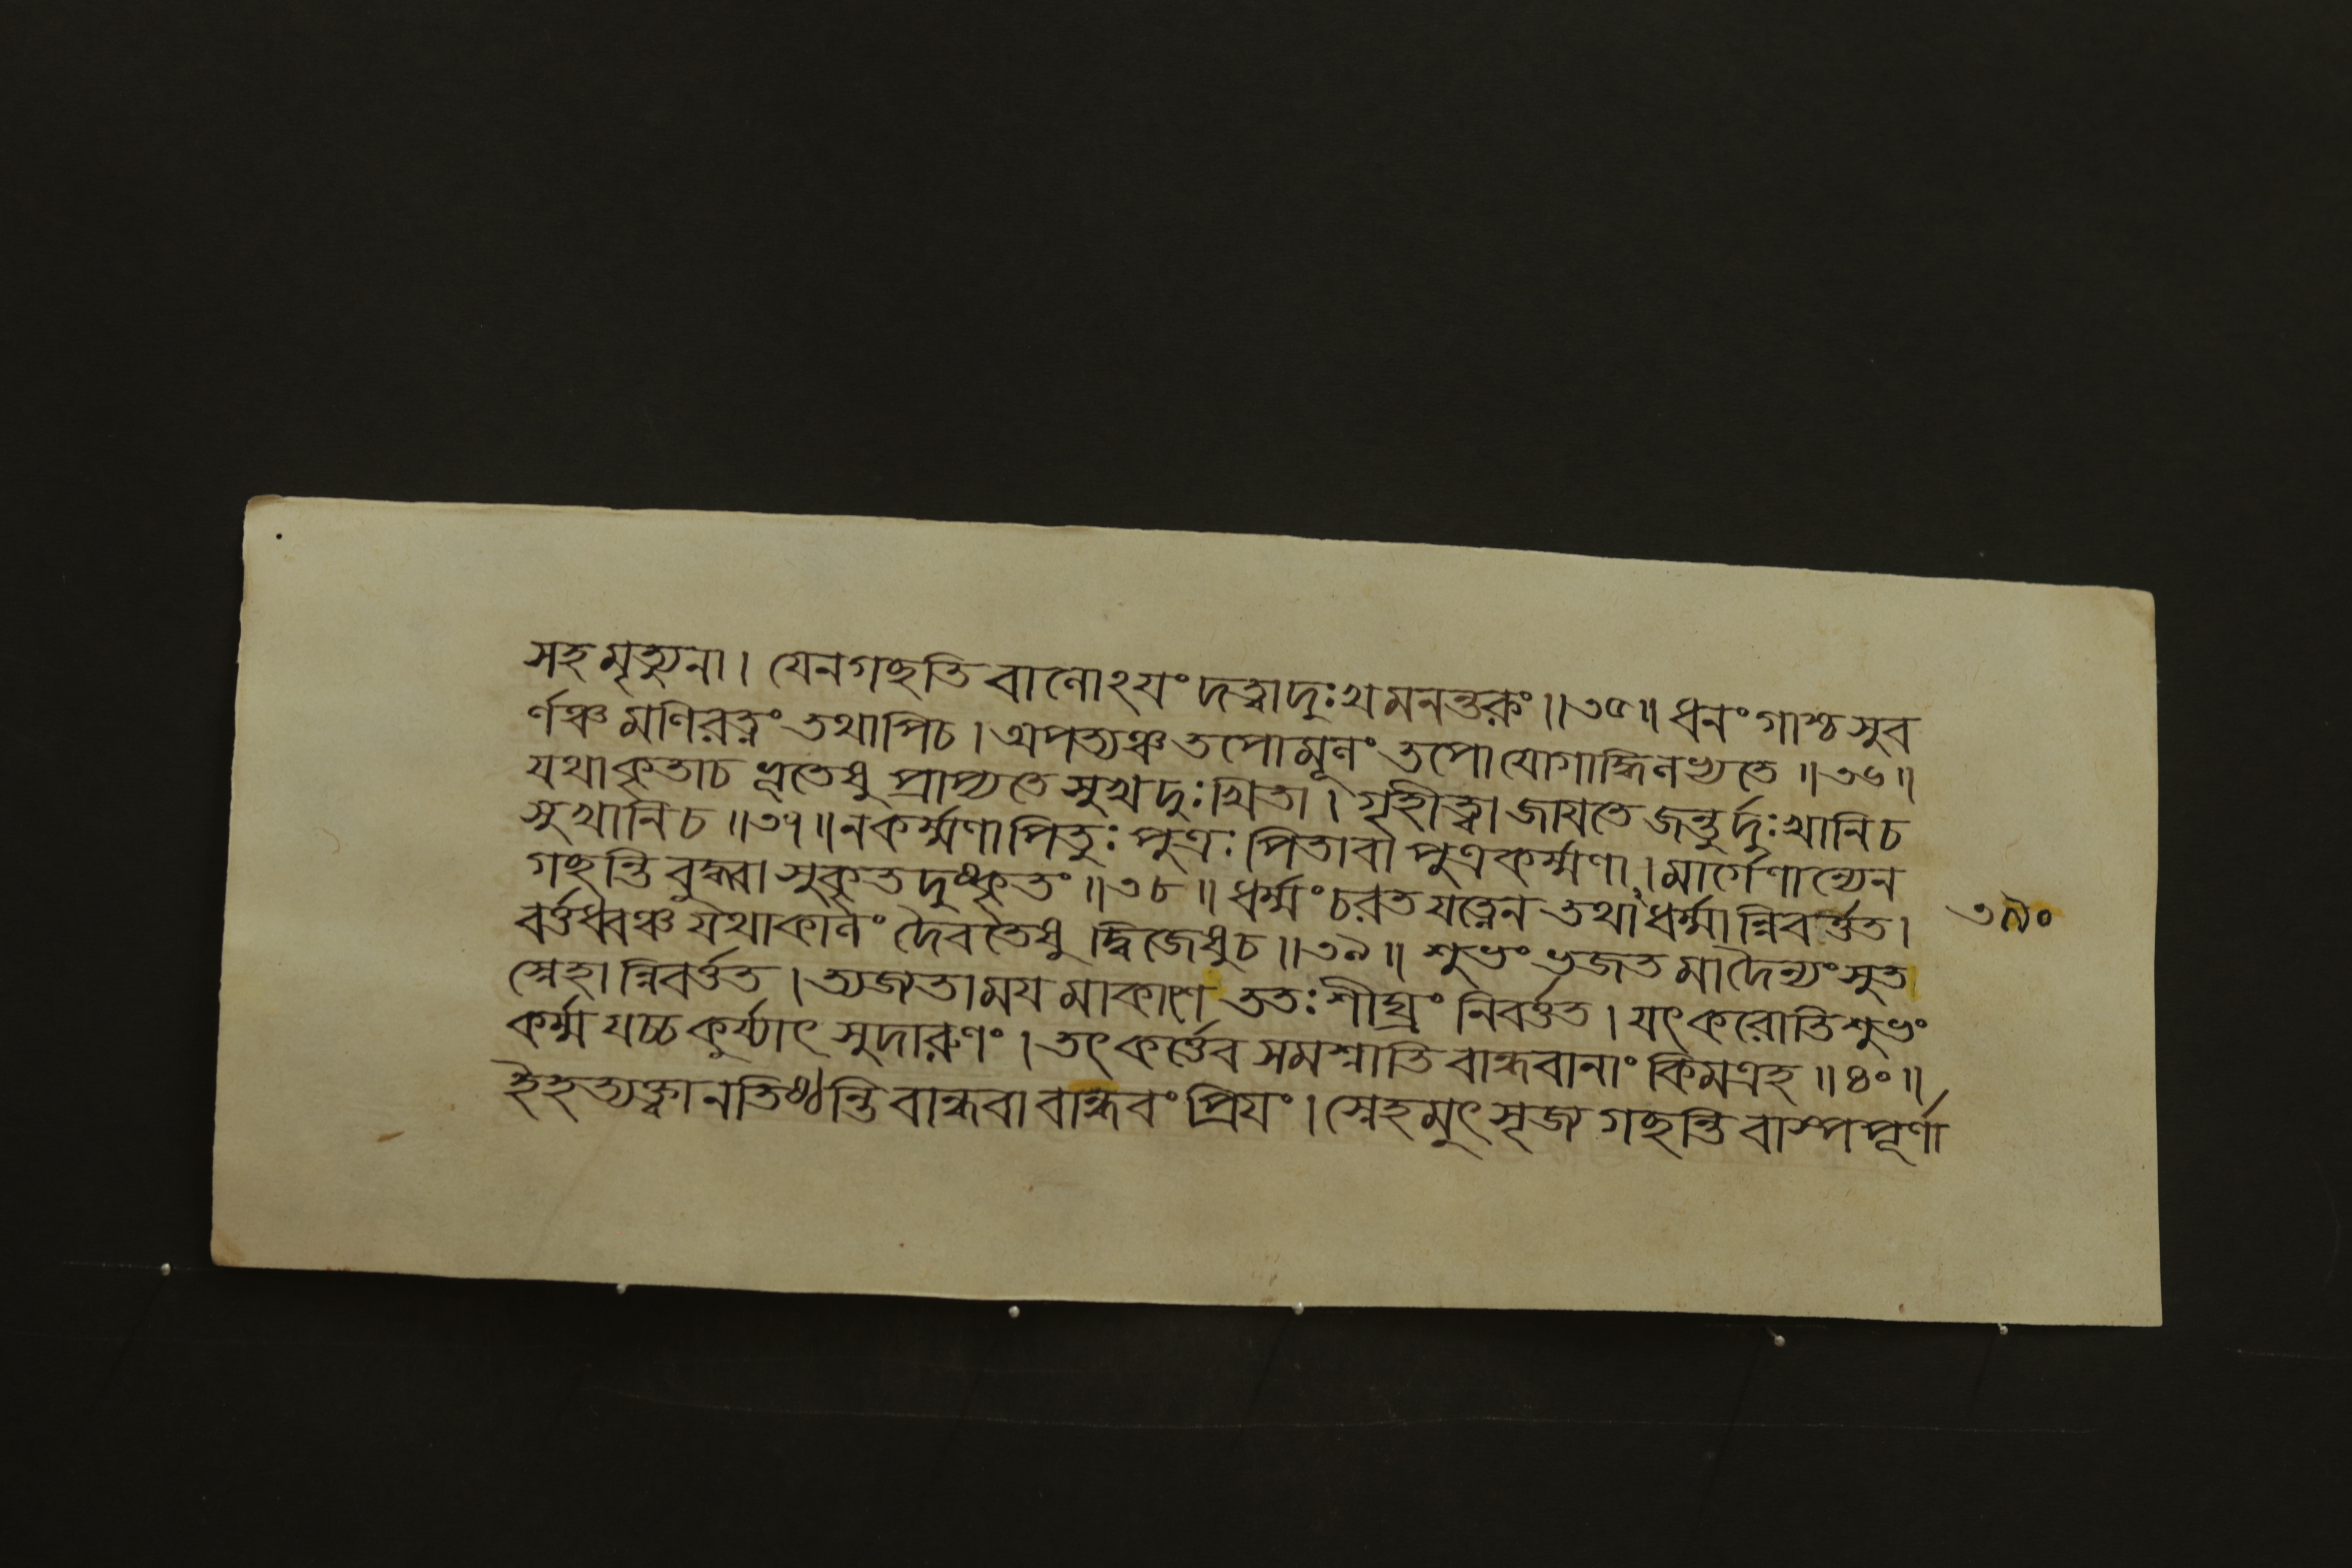 সহমৃত্যুনা। যেনগচ্ছতি বাণোঽযং দত্বাদুঃখমনন্তকং॥৩৫॥ ধনং গাশ্চ সুব
র্ণঞ্চ মণিরত্নং তথাপিচ। অপত্যঞ্চ তপোমূলং তপোযোগাদ্ধিলভ্যতে॥৩৬॥
যথাকৃতাচ ভূতেষু প্রাপ্যতে সুখদুঃখিতা। গৃহীত্বা জাযতে জন্তুর্দুঃখানিচ
সুখানিচ॥৩৭॥ নকর্ম্মণাপিতুঃ পুত্রঃ পিতাবা পুত্রকর্ম্মণা। মার্গেণান্যেন
গচ্ছন্তি বুদ্ধ্বা সুকৃতদুষ্কৃতং॥৩৮॥ ধর্ম্মং চরত যত্নেন তথাঽধর্ম্মান্নিবর্ত্তত।
বর্ত্তধ্বঞ্চ যথাকালং দৈবতেষু দ্বিজেষুচ॥৩৯॥ শুভং ভজত মাদৈন্যং সুত
স্নেহান্নিবর্ত্তত। ত্যজতামযমাকাশে ততঃ শীঘ্রং নিবর্ত্তত। যৎকরোতি শুভং
কর্ম্ম যচ্চ কুর্য্যাৎ সুদারুণং। তৎ কর্ত্তেব সমশ্নাতি বান্ধবানাং কিমত্রহ॥৪০॥
ইহত্যক্ত্বা নতিষ্ঠন্তি বান্ধবা বান্ধবং প্রিযং। স্নেহমুৎসৃজ গচ্ছন্তি বাস্পপূর্ণা
৩৯০